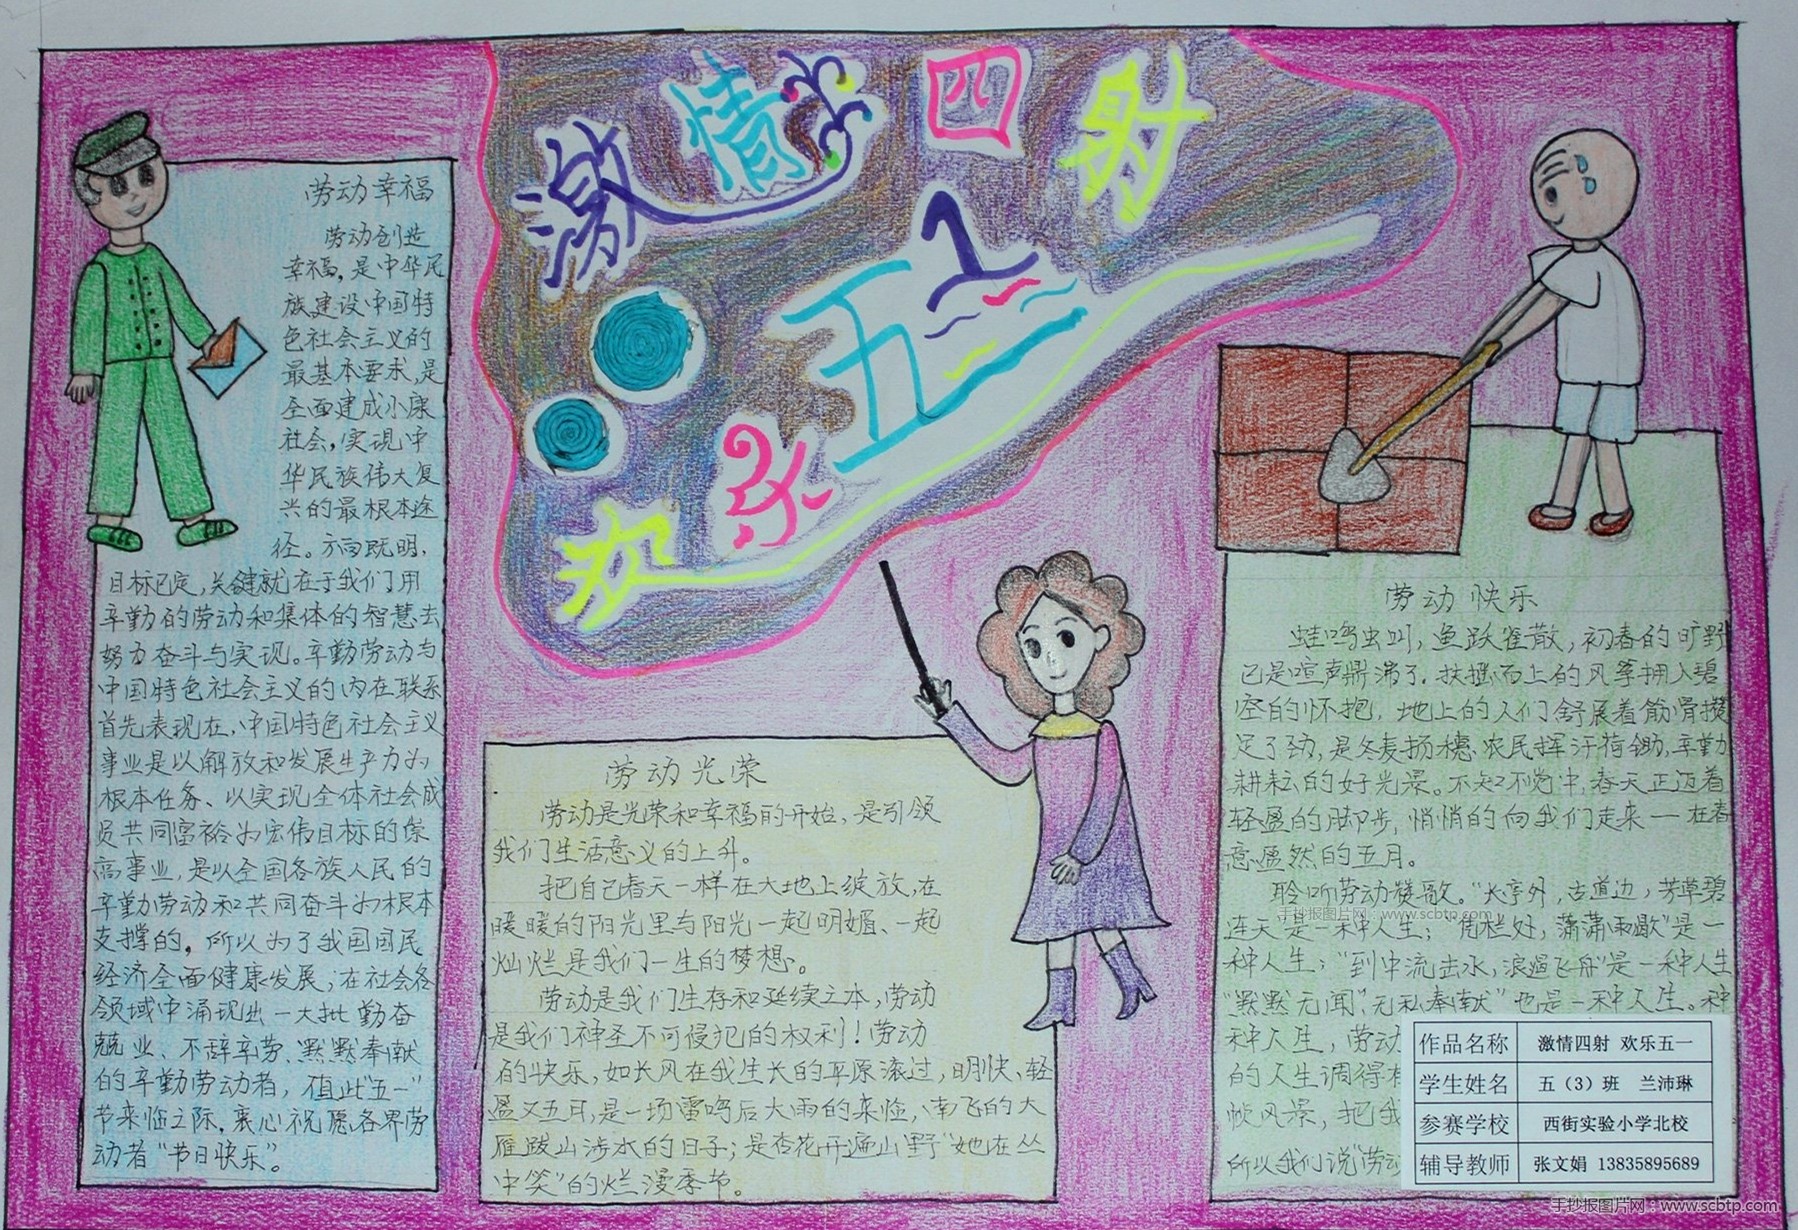 激情四射
欢乐五1
劳动幸福
劳动创造
幸福,是中华民
族建设中国特
色社会主义的
最基本要求,是
全面建成小康
社会,实现中
华民族伟大复
兴的最根本途
径。方向既明,
目标已定,关键就在于我们用
辛勤的劳动和集体的智慧去
努力奋斗与实现。辛勤劳动与
中国特色社会主义的内在联系
首先表现在,中国特色社会主义
事业是以解放和发展生产力为
根本任务、以实现全体社会成
员共同富裕为宏伟目标的崇
高事业,是以全国各族人民的
辛勤劳动和共同奋斗为根本
支撑的。所以为了我国国民
经济全面健康发展;在社会各
领域中涌现出一大批勤奋
兢业、不辞辛劳、默默奉献
的辛勤劳动者,值此"五一"
节来临之际,衷心祝愿各界劳
动者"节日快乐"。
劳动光荣
劳动是光荣和幸福的开始,是引领
我们生活意义的上升。
把自己春天一样在大地上绽放,在
暖暖的阳光里与阳光一起明媚、一起
灿烂是我们一生的梦想。
劳动是我们生存和延续之本,劳动
是我们神圣不可侵犯的权利!劳动
的快乐,如长风在我生长的平原滚过,明快、轻
盈又五月,是一场雷鸣后大雨的来临,南飞的大
雁跋山涉水的日子;是杏花开遍山野"她在丛
中笑"的烂漫季节。
劳动快乐
蛙鸣虫叫,鱼跃雀散,初春的旷野
已是喧声鼎沸了.扶摇而上的风筝拥入碧
空的怀抱,地上的人们舒展着筋骨攒
足了劲,是冬麦扬穗.农民挥汗荷锄,辛勤
耕耘的好光景。不知不觉中,春天正迈着
轻盈的脚步,悄悄的向我们走来一在春
意盎然的五月。
聆听劳动赞歌。"长亭外,古道边,芳草碧
连天"是一种人生;"凭栏处,潇潇雨歇"是一
种人生;"到中流击水,浪遏飞舟"是一种人生
"默默无闻","无私奉献"也是一种人生。种
种人生,劳动
的人生调得有
帧风景,把我
所以我们说"劳动
作品名称 激情四射 欢乐五一
学生姓名 五(3)班 兰沛琳
参赛学校 西街实验小学北校
辅导教师 张文娟 13835895689
手抄报图片网:www.scbtp.com
手抄报图片网:www.scbtp.com